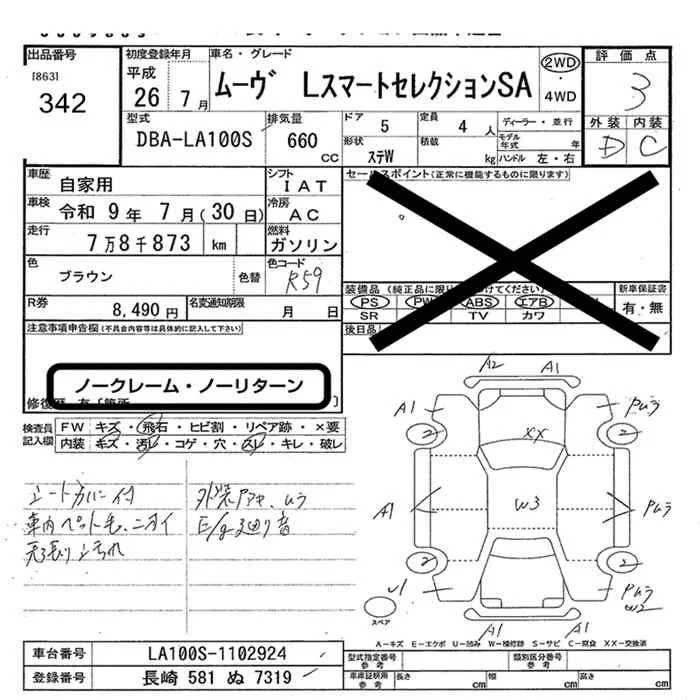 出品番号
[863]
342
初度登録年月
平成
26 7月
車名・グレード
ムーヴ LスマートセレクションSA
2WD
・
4WD
評価点
3
外装 内装
D C
型式
DBA-LA100S
排気量
660
CC
ドア 5
定員 4 人
ディーラー・並行
形状 ステW
積載 kg
モデル年式 年
ハンドル 左・右
車歴 自家用
シフト IAT
車検 令和 9年 7月(30日)
冷房 AC
走行 7万8千873 km
燃料 ガソリン
色 ブラウン 色替
色コード R59
R券 8,490円
名変通知期限 月 日
セールスポイント(正常に機能するものに限ります)
装備品(純正品に限り
けてください)
PS PW ABS エアB
SR TV カワ
新車保証書
有・無
後日品
注意事項申告欄(不具合内容等は具体的に記入して下さい)
ノークレーム・ノーリターン
検査員記入欄
FW キズ・飛石・ヒビ割・リペア跡・×要
内装 キズ・汚レ・コゲ・穴・スレ・キレ・破レ
シートカバー付
車内ペット毛、ニオイ
天張り汚れ
外装アセ、ムラ
E/g廻り音
A2 A1
A1 Pムラ
2 2
XX
W3
A1 Pムラ
2 2
U1 Pムラ
W2
A1 A1
スペア
A-キズ E-エクボ U-凹み W-補修跡 S-サビ C-腐食 XX-交換済
車台番号 LA100S-1102924
登録番号 長崎 581 ぬ 7319
型式指定番号 参考
類別区分番号 参考
車庫証明用 参考
長さ cm 幅 cm 高さ cm